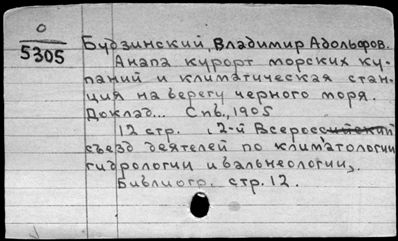 О
5305
Будзинский, Владимир Адольфов.
Анапа курорт морских ку-
паний и климатическая стан-
ция на берегу Черного моря.
Доклад... Спб., 1905
12 стр. (2-й Всероссийский
съезд деятелей по климатологии
гидрологии и бальнеологии).
Библиогр. стр. 12.